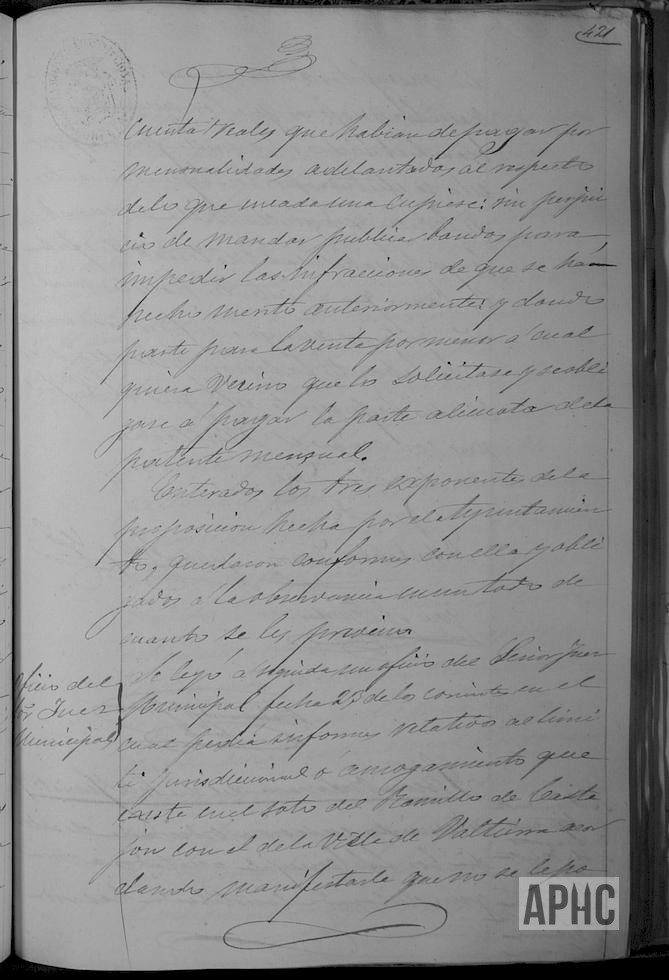 421
cuenta reales que habian de pagar por
mensualidades adelantadas al respecto
de lo que á cada una cupiese: sin perjui
cio de mandar publicar bandos para
impedir las infracciones de que se ha
hecho merito anteriormente: y dando
parte para la venta por menor á cual
quiera vecino que lo solicitase y se obli
gase á pagar la parte alicuota de la
patente mensual.
Enterados los tres exponentes de la
proposicion hecha por el Ayuntamien
to, quedaron conformes con ella y obli
gados á la observancia en un todo de
cuanto se les previno
Oficio del
Sor Juez
Municipal
Se leyó á seguida un oficio del Señor Juez
Municipal fecha 25 de los corrientes en el
cual pedia informes relativos al limi
te jurisdiccional o amogamiento que
existe en el soto del Ramillo de Caste
jon con el de la Villa de Valtierra acor
dando manifestarle que no se le po
APHC